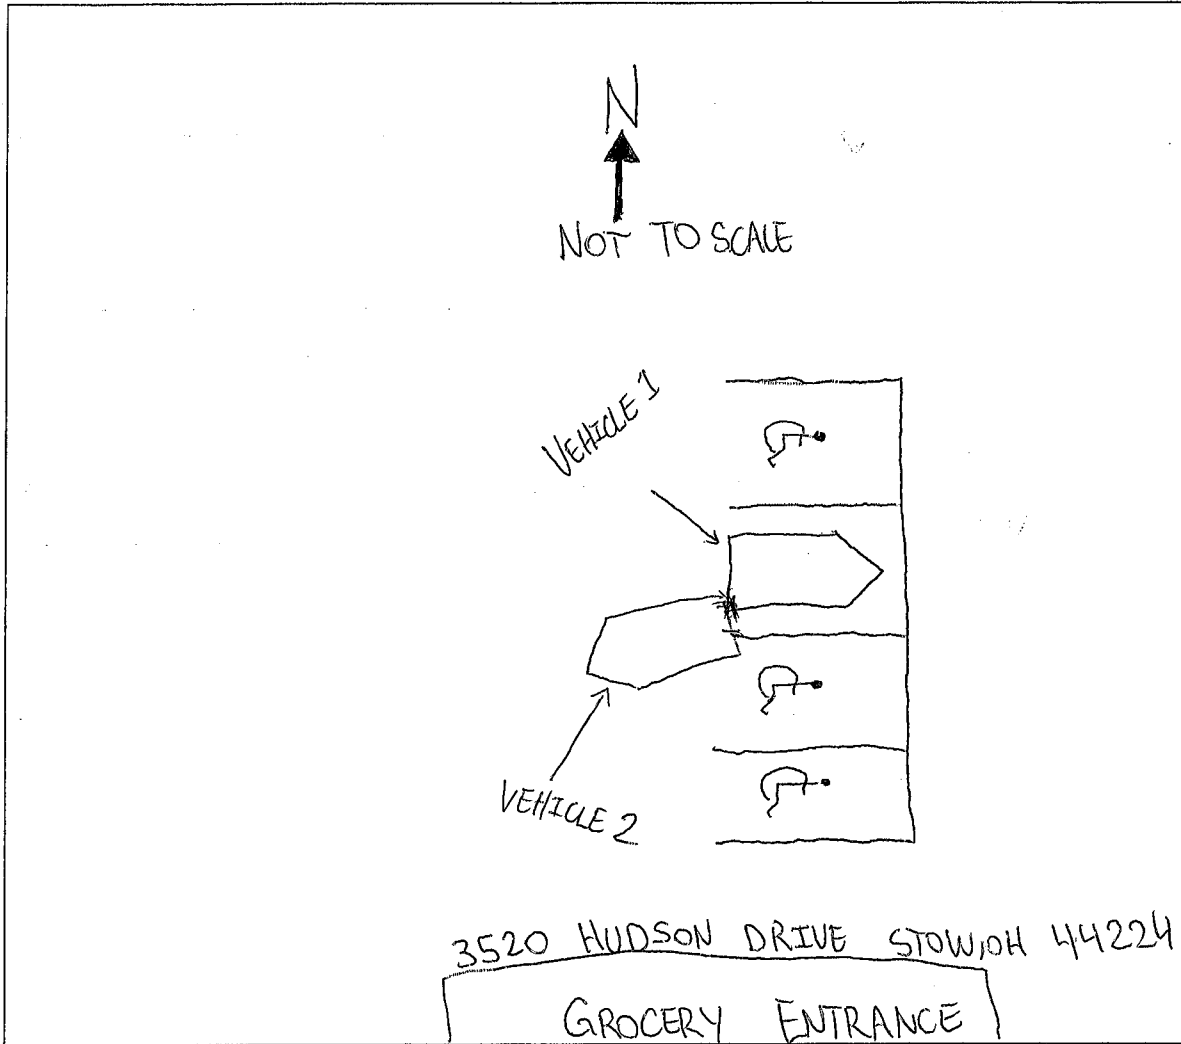 N
NOT TO SCALE
VEHICLE 1
VEHICLE 2
3520 HUDSON DRIVE STOW, OH 44224
GROCERY ENTRANCE